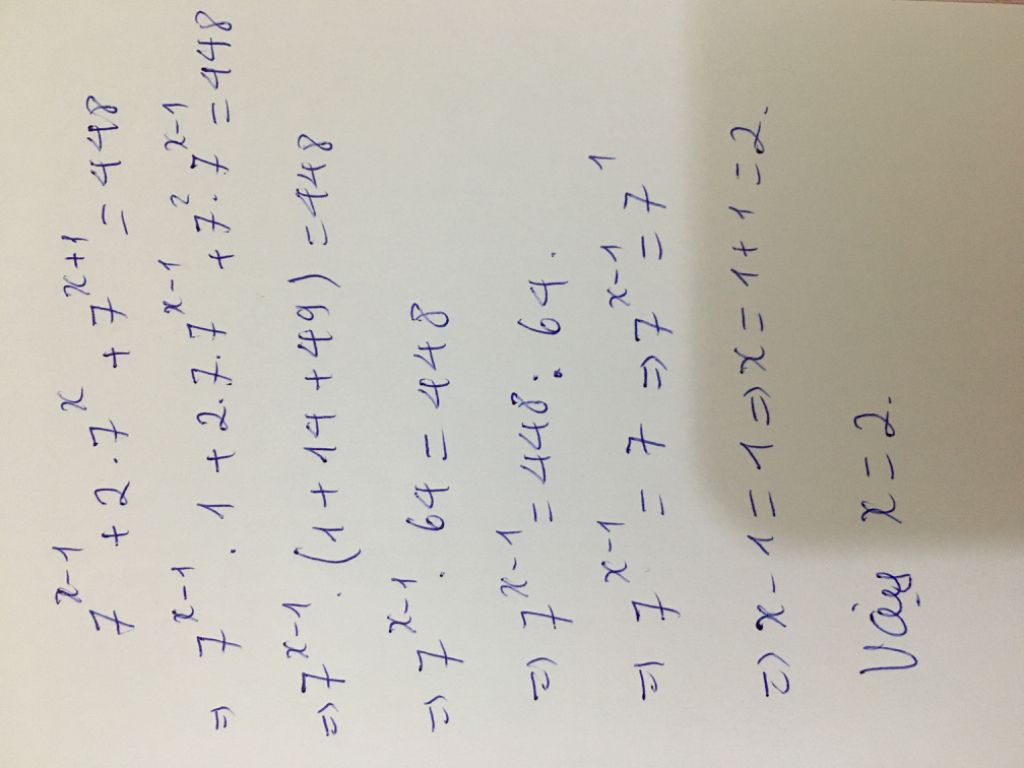 7^{x-1} + 2 . 7^x + 7^{x+1} = 448
=> 7^{x-1} . 1 + 2.7.7^{x-1} + 7^2 . 7^{x-1} = 448
=> 7^{x-1} . (1 + 14 + 49) = 448
=> 7^{x-1} . 64 = 448
=> 7^{x-1} = 448 : 64 .
=> 7^{x-1} = 7 => 7^{x-1} = 7^1
=> x - 1 = 1 => x = 1 + 1 = 2.
Vậy x = 2.